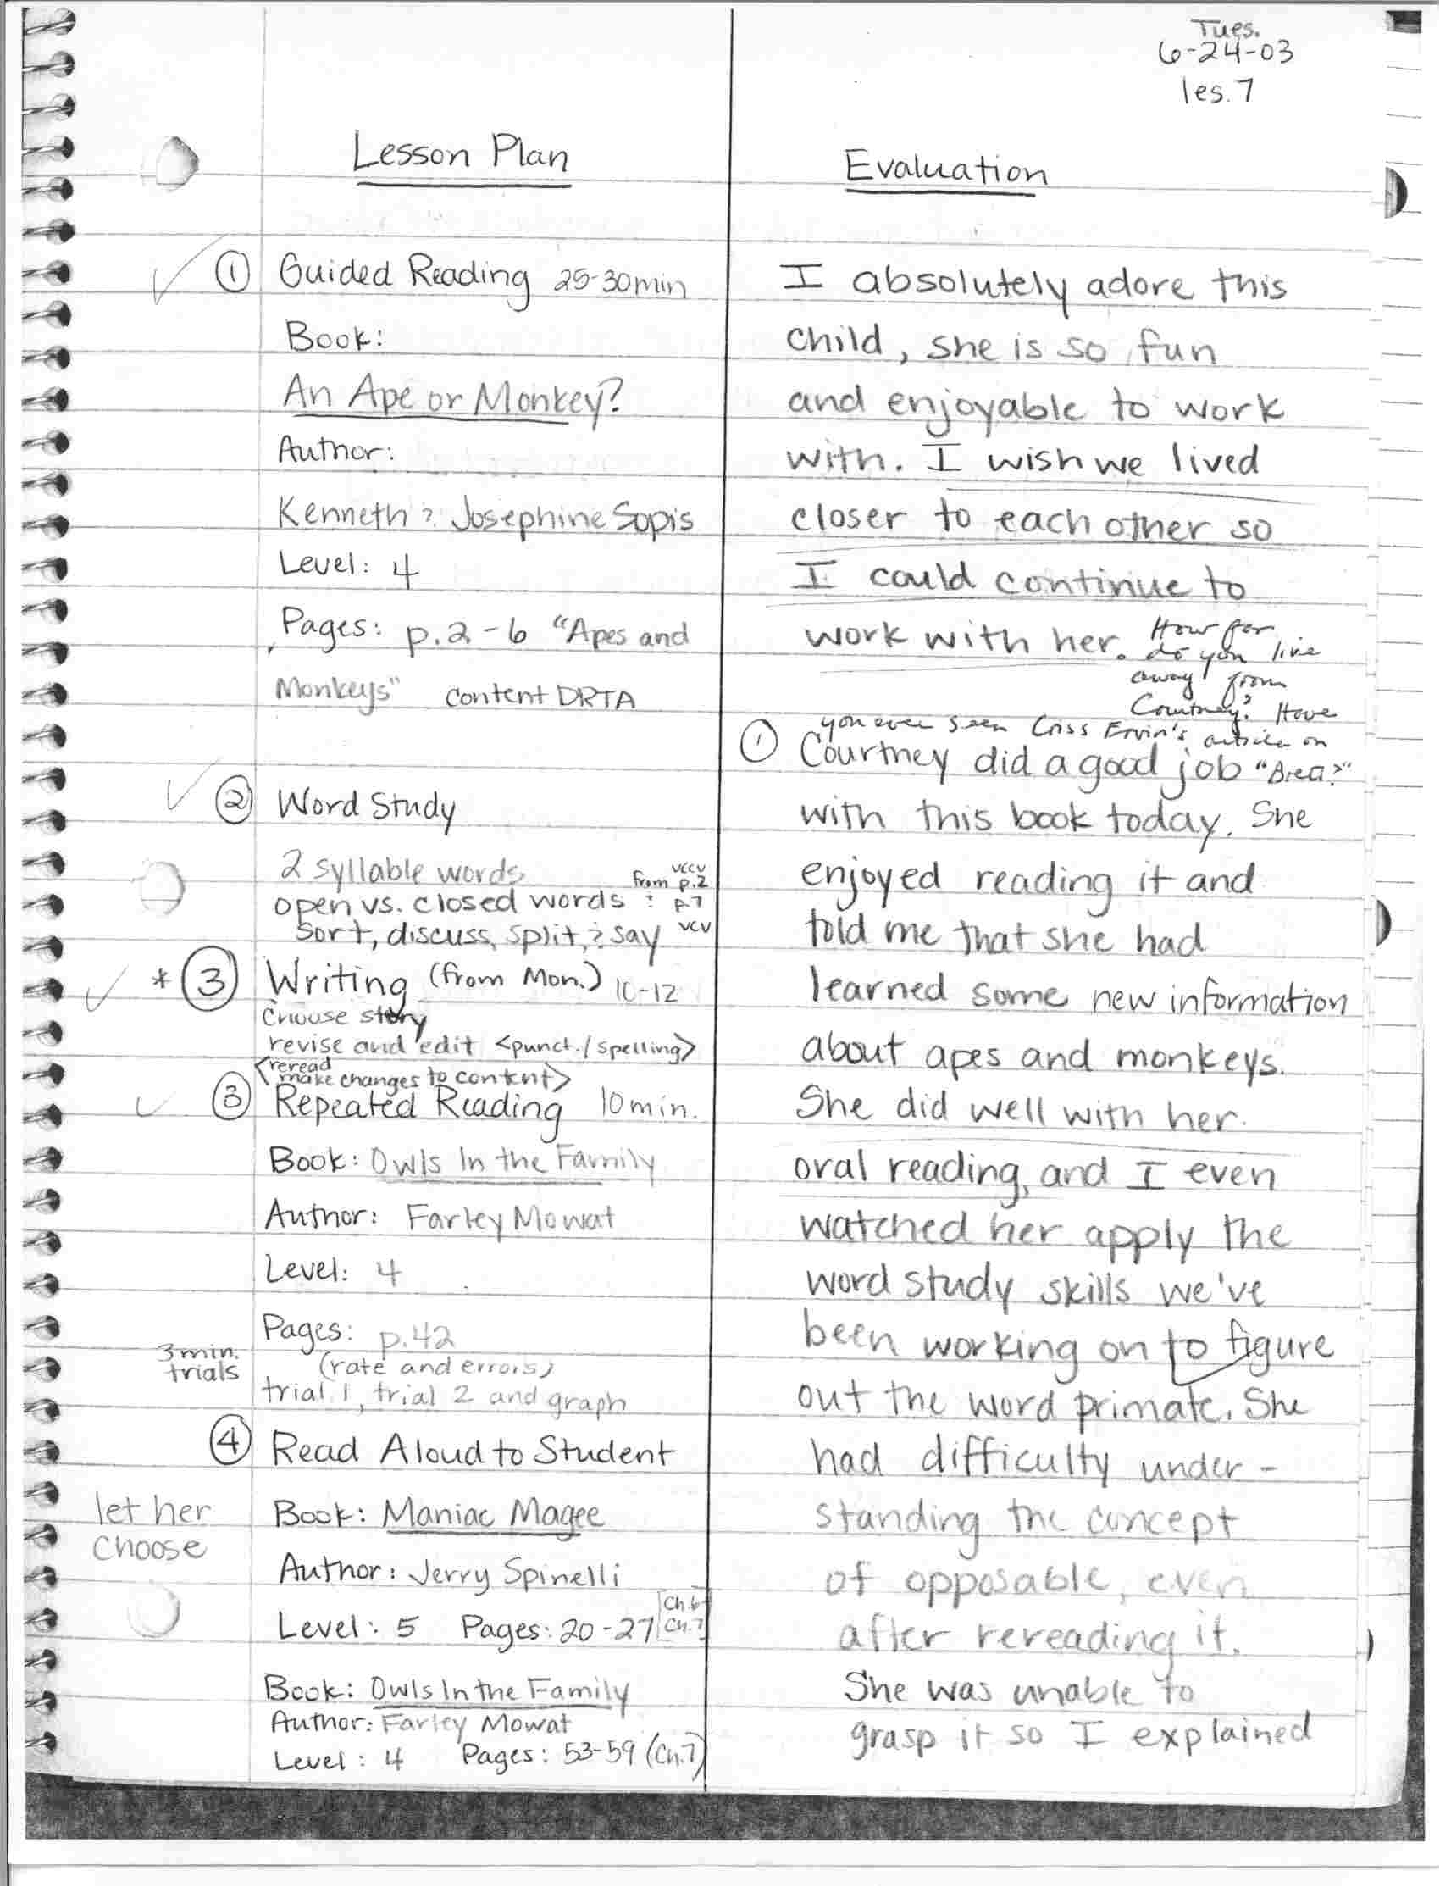 Tues.
6-24-03
les. 7
Lesson Plan
① Guided Reading 25-30min
Book:
An Ape or Monkey?
Author:
Kenneth & Josephine Sopis
Level: 4
Pages: p.2-6 "Apes and
Monkeys" content DRTA
② Word Study
2 syllable words
open vs. closed words
from vccv p.2 & p.7 vcv
sort, discuss, split, & say
* ③ Writing (from Mon.) 10-12
Choose story
revise and edit <punct./spelling>
<reread
make changes to content>
③ Repeated Reading 10min.
Book: Owls In the Family
Author: Farley Mowat
Level: 4
Pages: p.42
3 min.
trials
(rate and errors)
trial 1, trial 2 and graph
④ Read Aloud to Student
let her
choose
Book: Maniac Magee
Author: Jerry Spinelli
Level: 5 Pages: 20-27 Ch.6 Ch.7
Book: Owls In the Family
Author: Farley Mowat
Level: 4 Pages: 53-59 (Ch.7)
Evaluation
I absolutely adore this
child, she is so fun
and enjoyable to work
with. I wish we lived
closer to each other so
I could continue to
work with her.
How far
do you live
away from
Courtney? Have
you ever seen Criss Ervin's article on
"Area?"
① Courtney did a good job
with this book today. She
enjoyed reading it and
told me that she had
learned some new information
about apes and monkeys.
She did well with her
oral reading, and I even
watched her apply the
word study skills we've
been working on to figure
out the word primate. She
had difficulty under-
standing the concept
of opposable, even
after rereading it.
She was unable to
grasp it so I explained